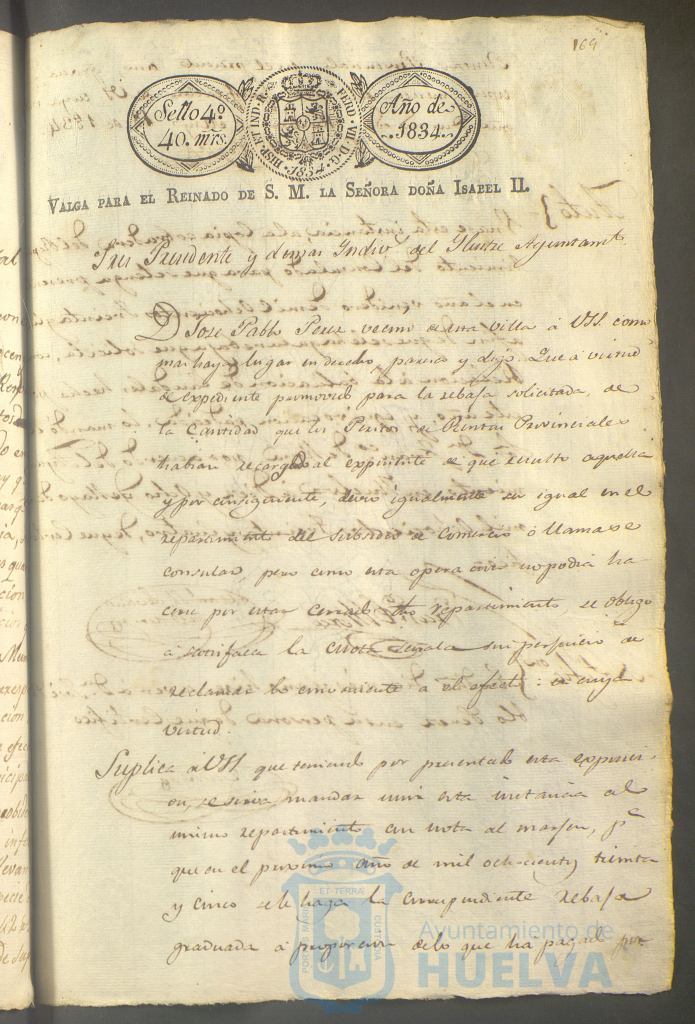 169
Sello 4º
40. mrs.
HISP. ET IND. R. FERD. VII. D. G. 1834
Año de
1834.
VALGA PARA EL REINADO DE S. M. LA SEÑORA DOÑA ISABEL II.
Sres Presidente y demas Indivs del Ylustre Ayuntamto
D Jose Pablo Perez vecino de esta villa á VSS. como
mas haya lugar en derecho, paresco y digo. Que á virtud
de expediente promovido para la rebaja solicitada de
la cantidad que los Peritos de Rentas Provinciales
habian recargado al exponente de que resulto aquella
y por consiguiente, devio igualmente su igual en el
repartimiento del subsidio de comercio ó llamase
consular, pero como esta operacion no podia ha-
cerse por estar cerrado dho repartimiento, se obligo
á satisfacer la cuota señala sin perjuicio de
reclamar lo conveniente á el efecto: en cuya
virtud.
Suplica á VSS que teniendo por presentada esta exposici-
on, se sirva mandar unir esta instancia al
mismo repartimiento con nota al margen, pa
que en el proximo año de mil ochocientos treinta
y cinco se le haga la correspondiente rebaja
graduada á proporcion de lo que ha pagado por
Ayuntamiento de
HUELVA